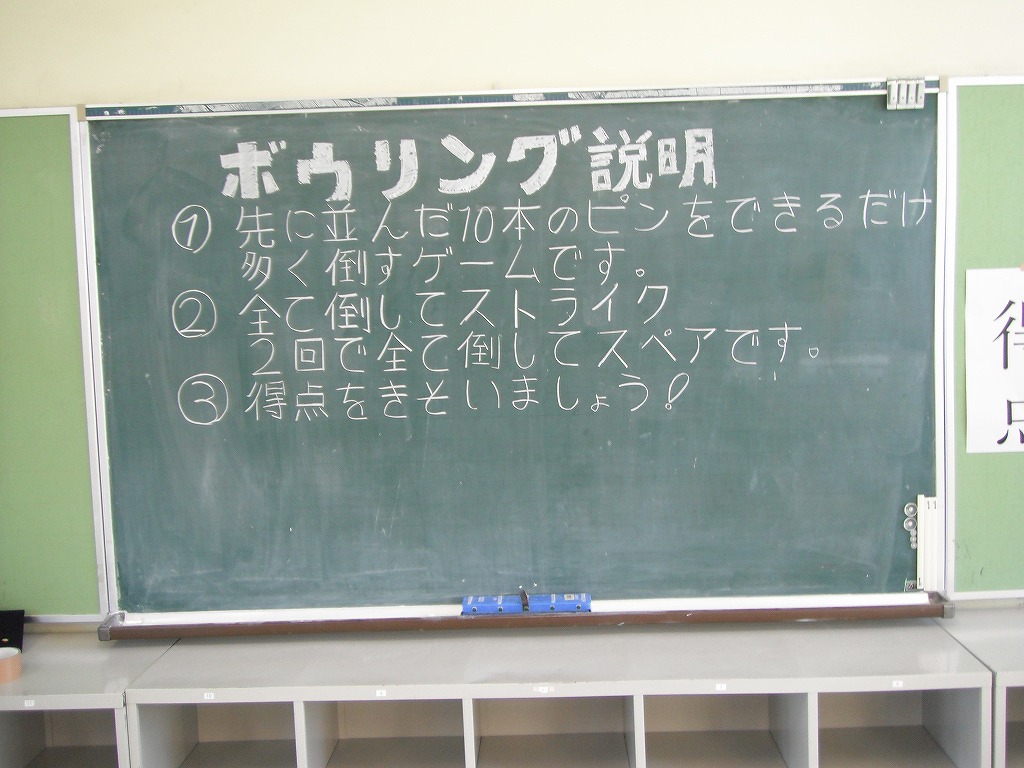 ボウリング説明
① 先に並んだ10本のピンをできるだけ
多く倒すゲームです。
② 全て倒してストライク
2回で全て倒してスペアです。
③ 得点をきそいましょう!
得